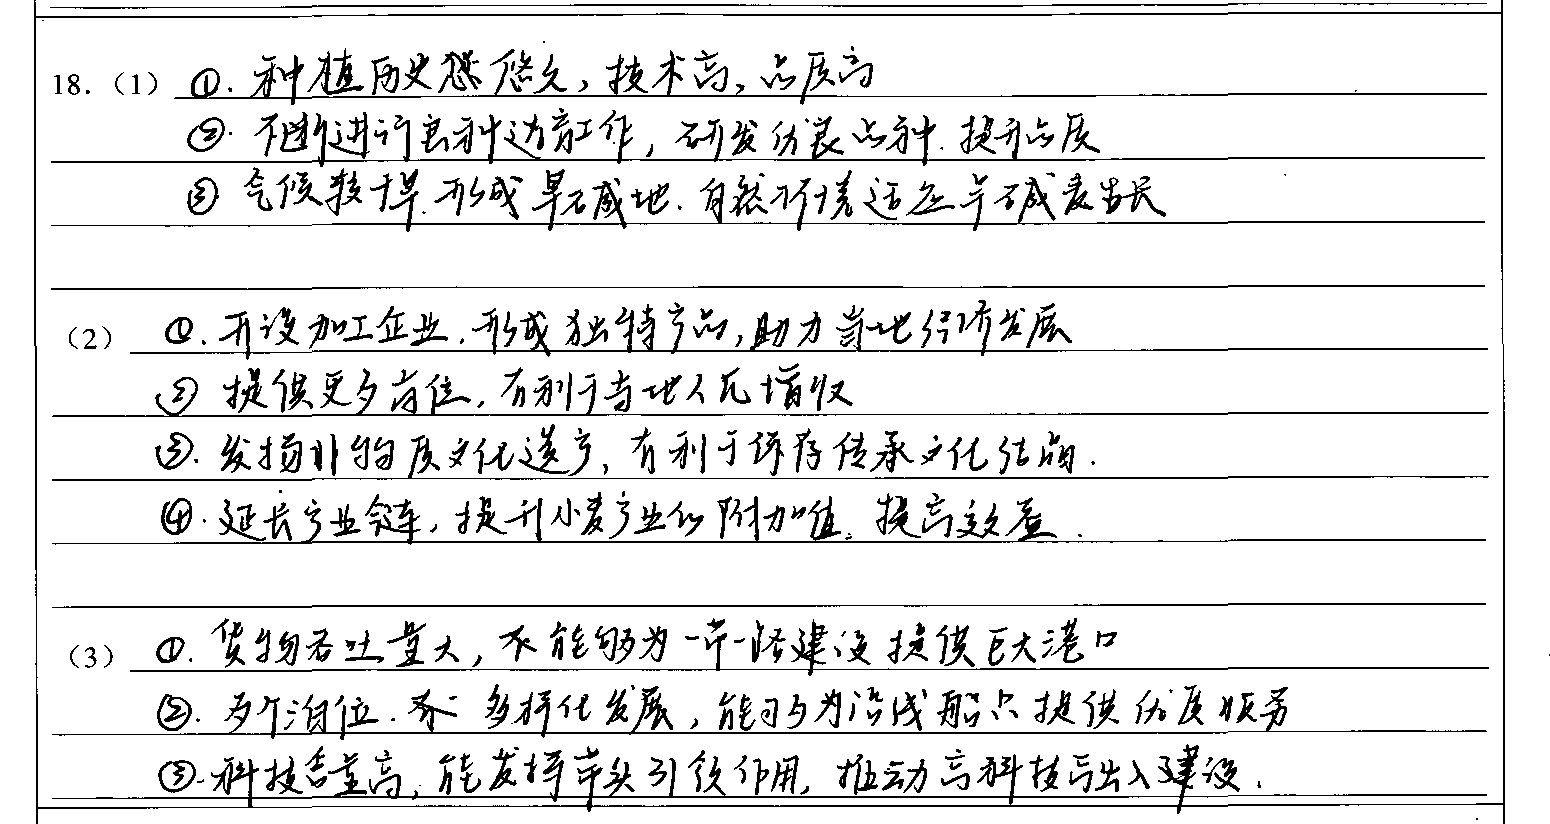 18.（1）①. 种植历史悠久，技术高，品质高
②. 不断进行良种选育工作，研发优良品种.提升品质
③ 气候较干旱.形成旱碱地.自然环境适应旱碱麦生长
（2）①.开设加工企业.形成独特产品,助力当地经济发展
② 提供更多岗位.有利于当地人民增收
③.发扬非物质文化遗产,有利于保存传承文化结晶.
④.延长产业链,提升小麦产业的附加值.提高效益.
（3）①.货物吞吐量大,能够为一带一路建设提供巨大港口
②.多个泊位.多样化发展,能够为沿线船只提供优质服务
③.科技含量高,能发挥带头引领作用,推动高科技 建设.